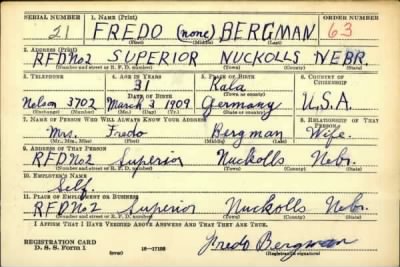 SERIAL NUMBER 1. NAME (Print) ORDER NUMBER
21 FREDO (none) BERGMAN 63
(First) (Middle) (Last)
2. ADDRESS (Print)
RFD No 2 SUPERIOR NUCKOLLS NEBR.
(Number and street or R. F. D. number) (Town) (County) (State)
3. TELEPHONE 4. AGE IN YEARS 5. PLACE OF BIRTH 6. COUNTRY OF CITIZENSHIP
31 Kala
DATE OF BIRTH (Town or county)
Nelson 3702 March 3 1909 Germany U.S.A.
(Exchange) (No.) (Mo.) (Day) (Yr.) (State or country)
7. NAME OF PERSON WHO WILL ALWAYS KNOW YOUR ADDRESS 8. RELATIONSHIP OF THAT PERSON
Mrs. Fredo Bergman Wife.
(Mr., Mrs., Miss) (First) (Middle) (Last)
9. ADDRESS OF THAT PERSON
RFD No 2 Superior Nuckolls Nebr.
(Number and street or R. F. D. number) (Town) (County) (State)
10. EMPLOYER'S NAME
Self.
11. PLACE OF EMPLOYMENT OR BUSINESS
RFD No 2 Superior Nuckolls Nebr.
(Number and street or R. F. D. number) (Town) (County) (State)
I AFFIRM THAT I HAVE VERIFIED ABOVE ANSWERS AND THAT THEY ARE TRUE.
REGISTRATION CARD
D. S. S. Form 1 (over) 16-17105 Fredo Bergman
(Registrant's signature)